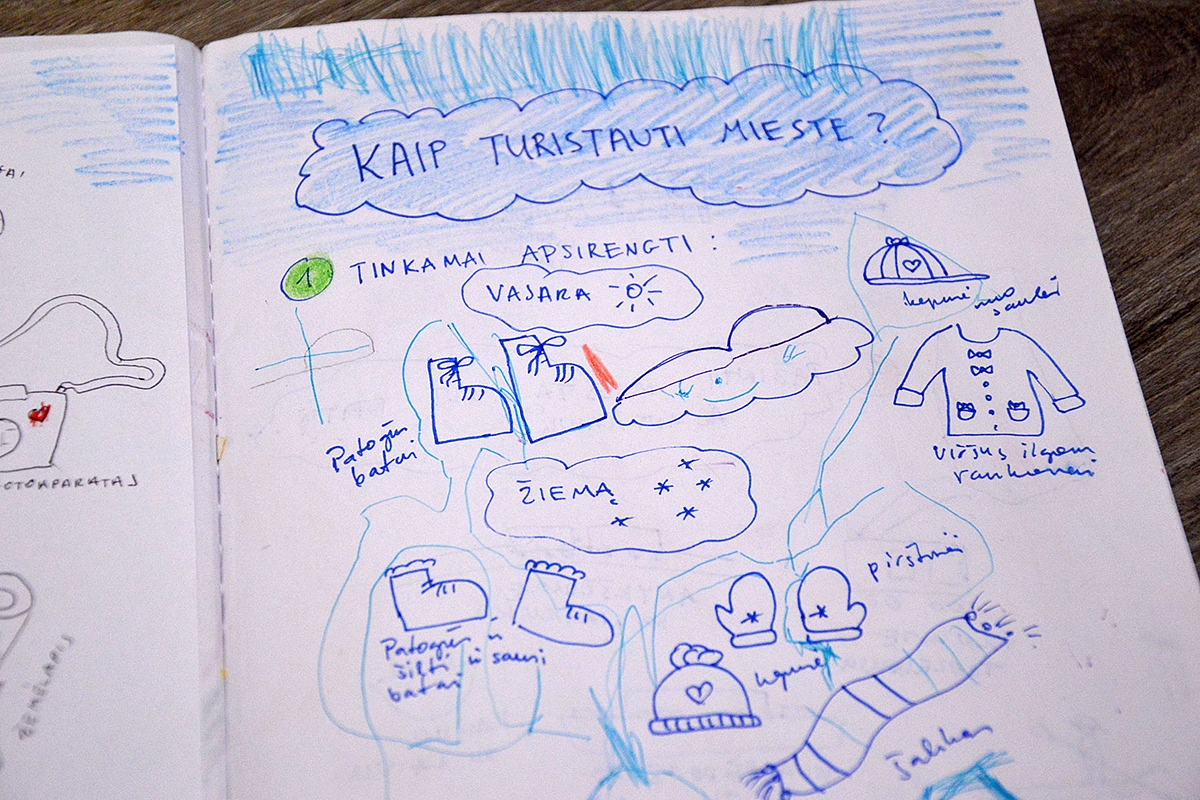 KAIP TURISTAUTI MIESTE?
1 TINKAMAI APSIRENGTI:
VASARA
kepurė nuo saulės
Patogūs
batai
viršus ilgom
rankovėm
ŽIEMA
pirštinės
Patogūs ir
šilti ir sausi
batai
kepurė
šalikas
FOTOAPARATAS